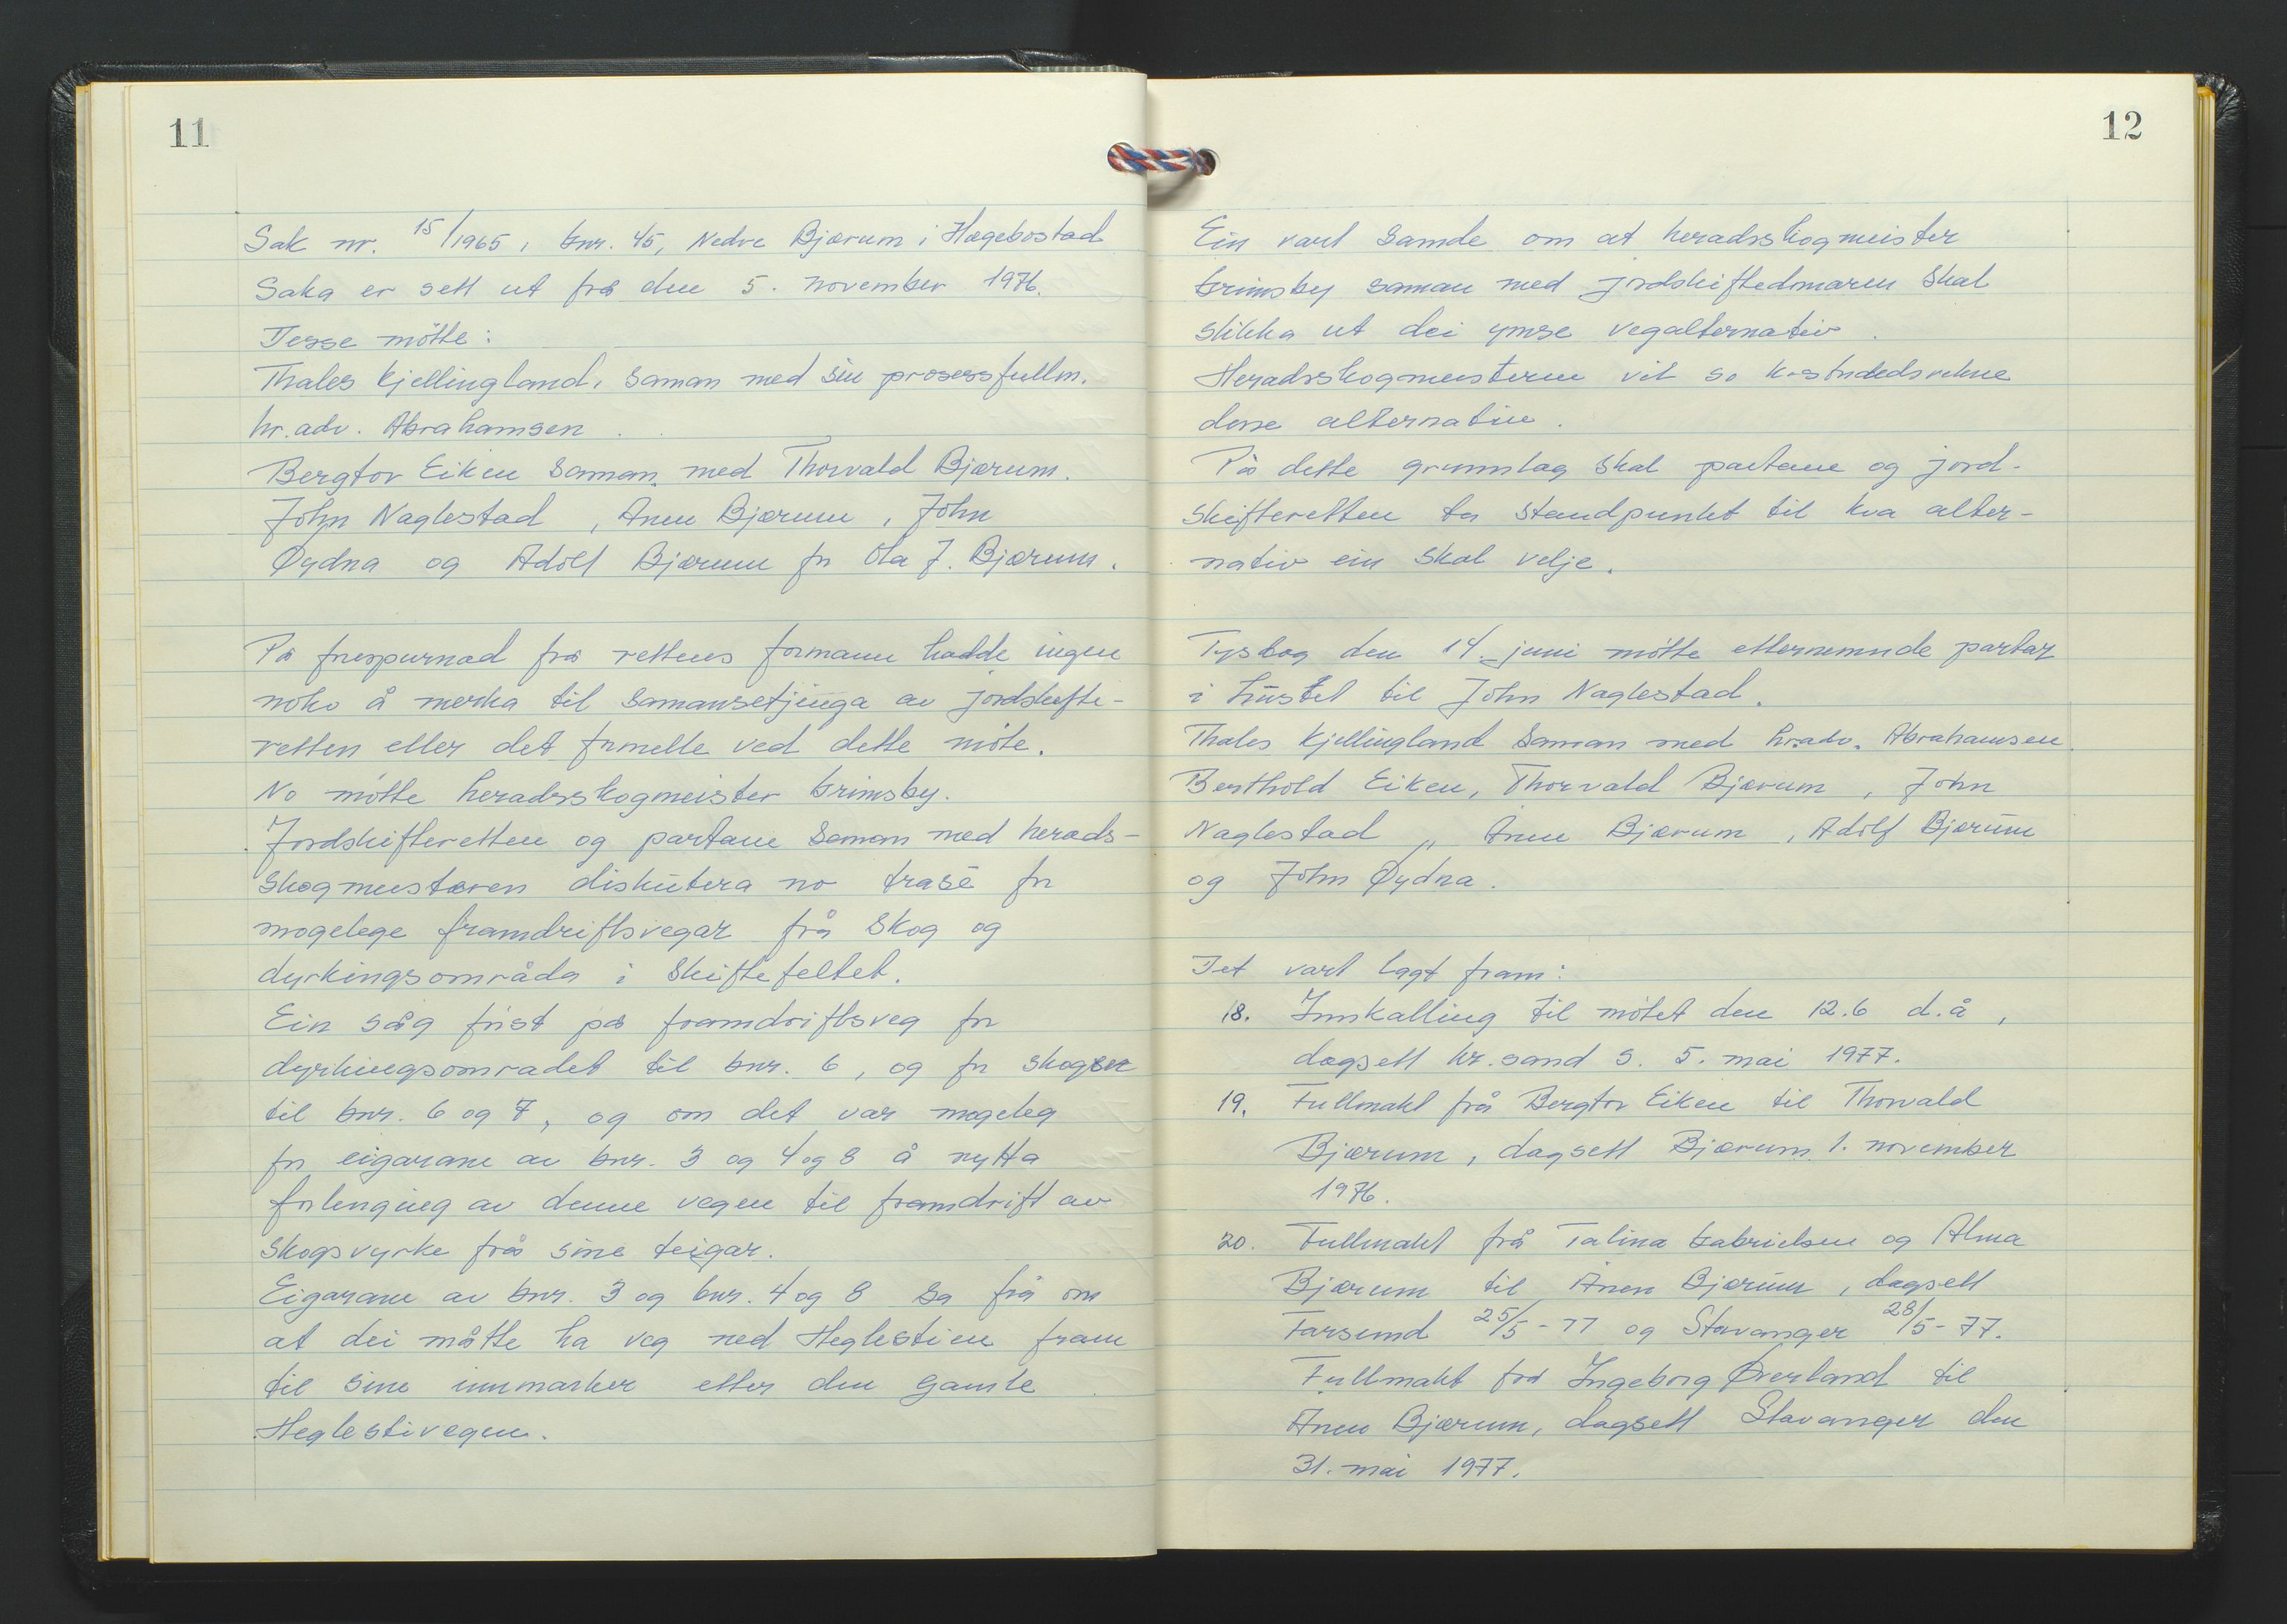 11
Sak nr. 15/1965, gnr. 45, Nedre Bjærum i Hægebostad
Saka er sett ut frå den 5. november 1976.
Desse møtte:
Thales Kjellingland, saman med sin prosessfullm.
hr.adv. Abrahamsen.
Bergtor Eiken saman med Thorvald Bjærum.
John Naglestad, Anen Bjærum, John
Øydna og Adolf Bjærum for Ola J. Bjærum.
På førespurnad frå rettens formann hadde ingen
noko å merka til samansetjinga av jordskifte-
retten eller det formelle ved dette møte.
No møtte heradsskogmeister Grimsby.
Jordskifteretten og partane saman med herads-
skogmeisteren diskutera no trasé for
mogelege framdriftsvegar frå skog og
dyrkingsområda i skiftefeltet.
Ein såg først på framdriftsveg for
dyrkingsområdet til bnr. 6, og for skogen
til bnr. 6 og 7, og om det var mogeleg
for eigarane av bnr. 3 og 4 og 8 å nytta
forlenging av denne vegen til framdrift av
skogsvyrke frå sine teigar.
Eigarane av bnr. 3 og bnr. 4 og 8 sa frå om
at dei måtte ha veg ned Heglestien fram
til sine innmarker etter den gamle
Heglestivegen.
12
Ein vart samde om at heradsskogmeister
Grimsby saman med jordskiftedomaren skal
stikka ut dei ymse vegalternativ.
Heradsskogmeisteren vil so kostnadsrekne
desse alternativa.
På dette grunnlag skal partane og jord-
skifteretten ta standpunkt til kva alter-
nativ ein skal velje.
Tysdag den 14. juni møtte etternemnde partar
i huset til John Naglestad.
Thales Kjellingland saman med hr.adv. Abrahamsen.
Berthold Eiken, Thorvald Bjærum, John
Naglestad, Anen Bjærum, Adolf Bjærum
og John Øydna.
Det vart lagt fram:
18. Innkalling til møtet den 12.6 d.å,
dagsett Kr.sand S. 5. mai 1977.
19. Fullmakt frå Bergtor Eiken til Thorvald
Bjærum, dagsett Bjærum 1. november
1976.
20. Fullmakt frå Talina Gabrielsen og Alma
Bjærum til Anen Bjærum, dagsett
Farsund 25/5-77 og Stavanger 28/5-77.
Fullmakt frå Ingeborg Øverland til
Anen Bjærum, dagsett Stavanger den
31. mai 1977.